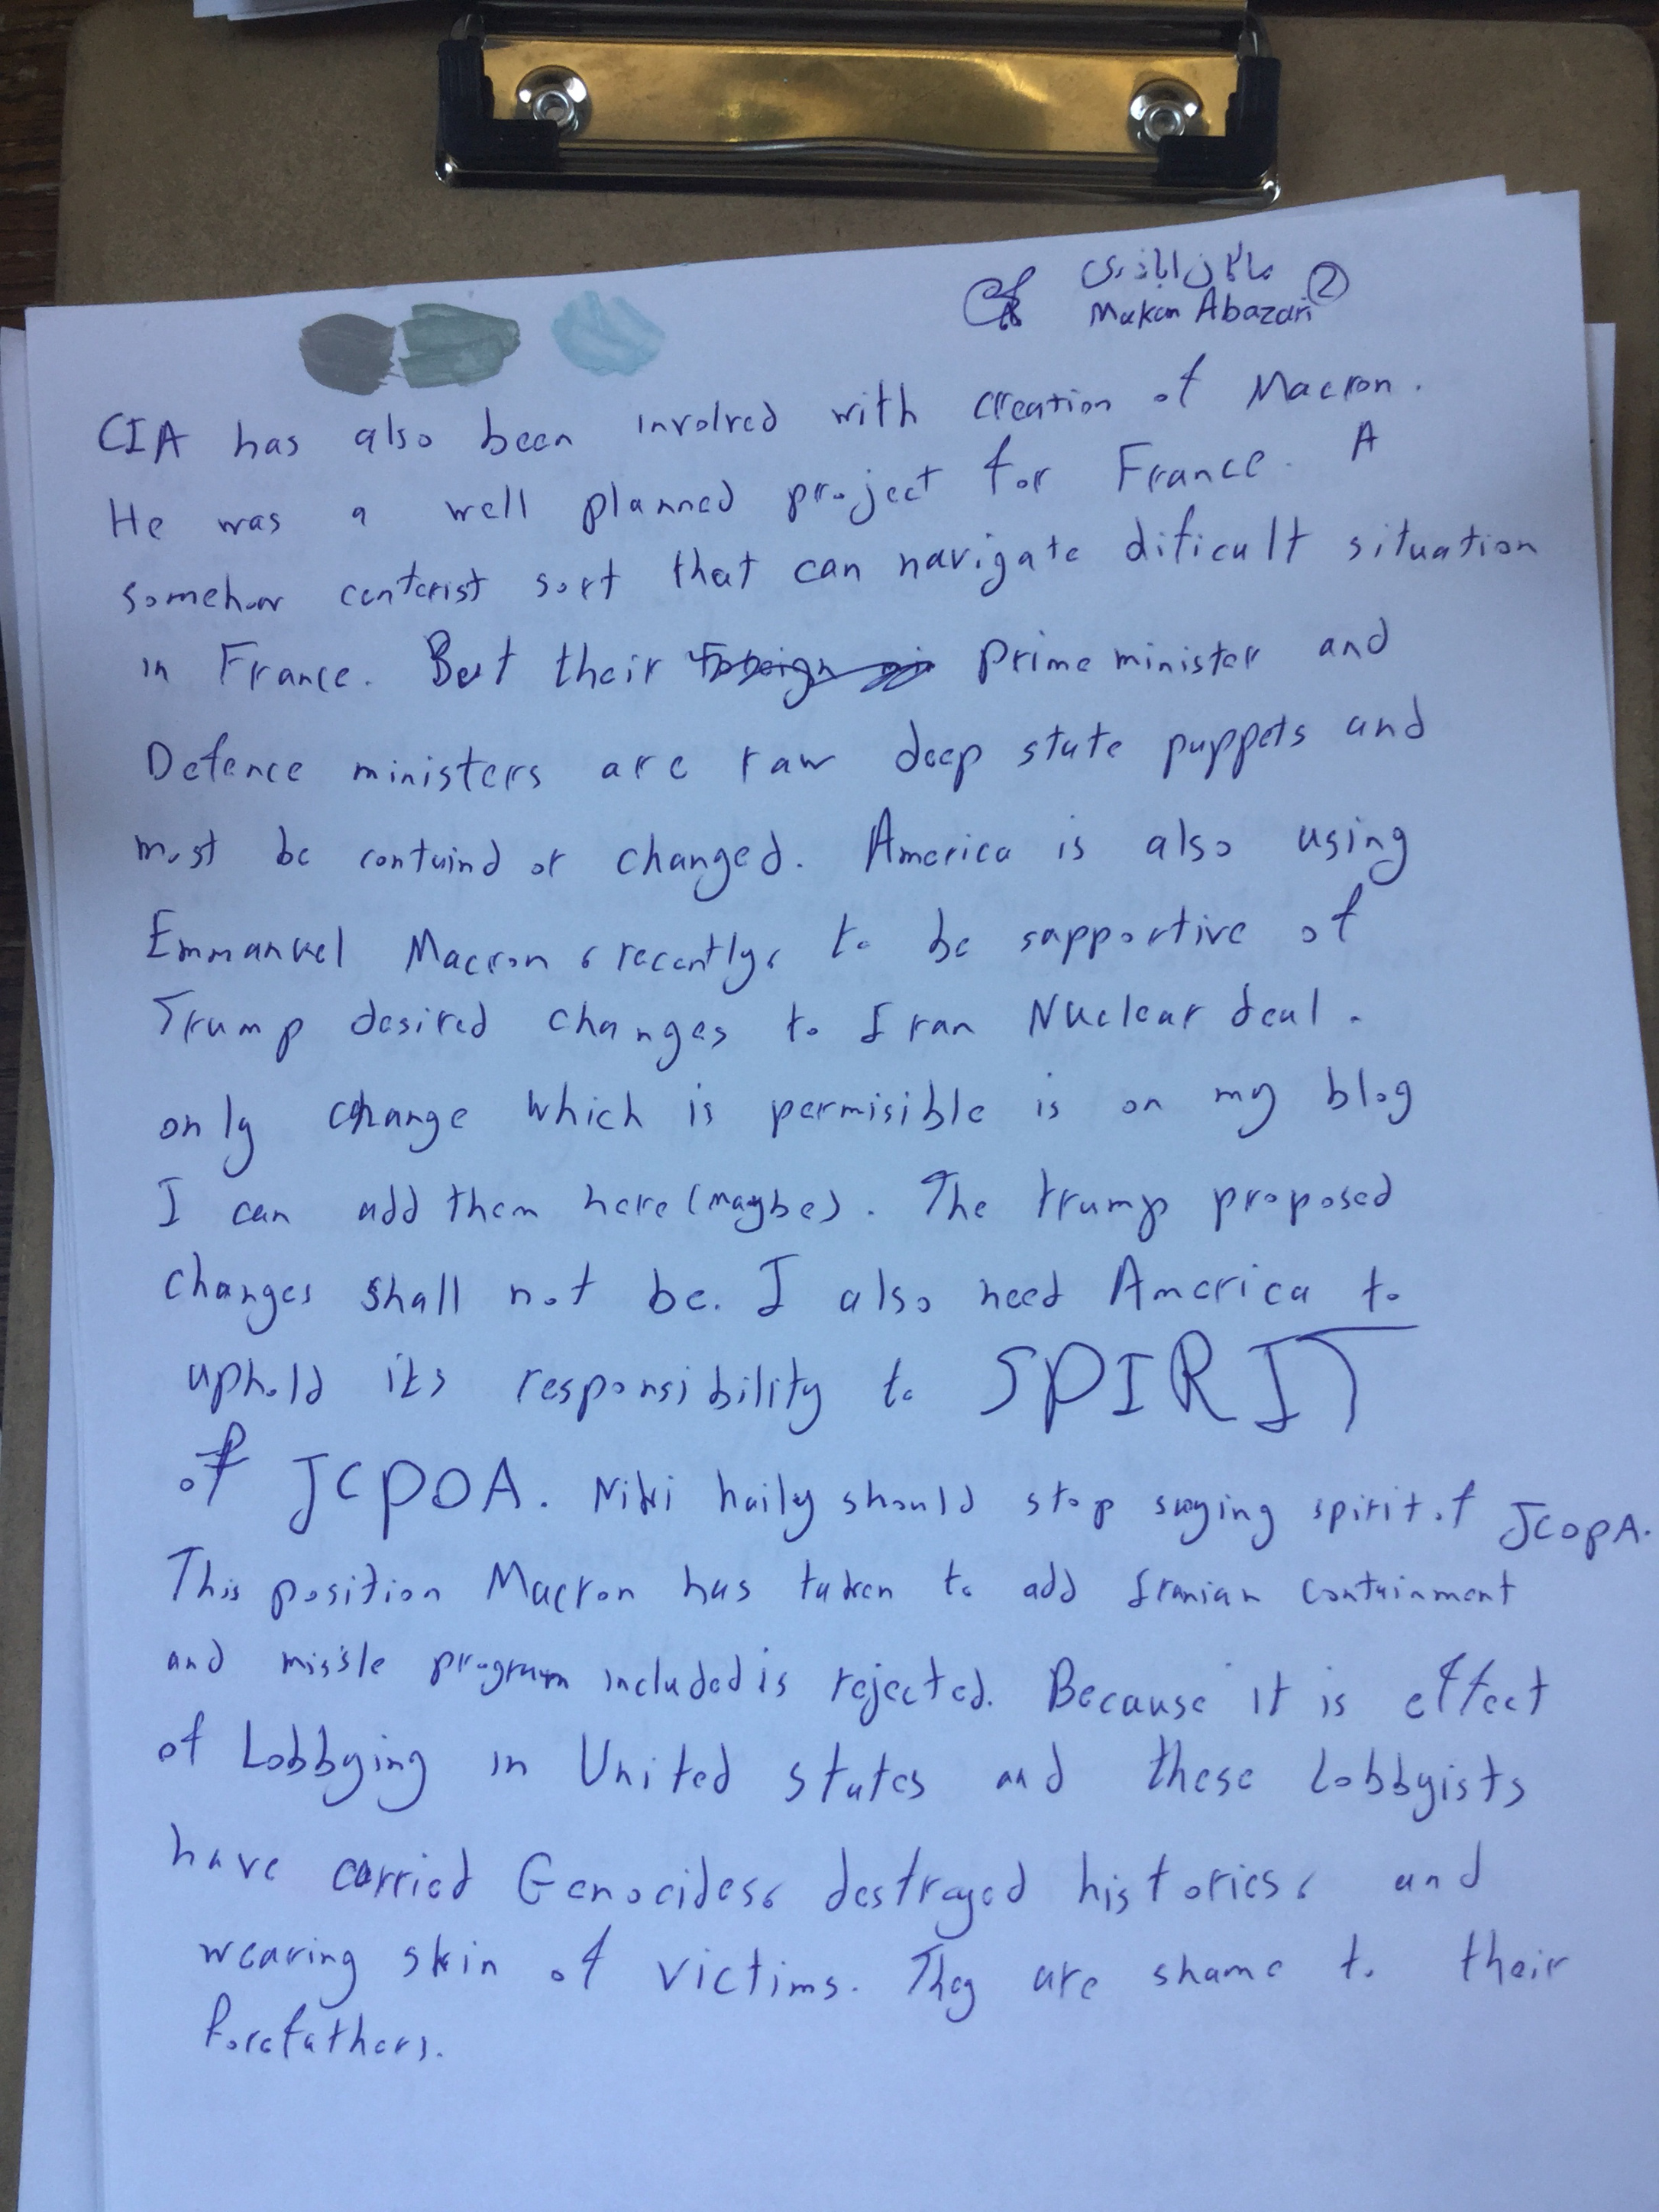 ماکان اباذری ②
Makan Abazari
CIA has also been involved with creation of Macron.
He was a well planned project for France. A
somehow centerist sort that can navigate dificult situation
in France. But their prime minister and
Defence ministers are raw deep state puppets and
must be containd or changed. America is also using
Emmanuel Macron، recently، to be supportive of
Trump desired changes to Iran Nuclear deal.
only change which is permisible is on my blog
I can add them here (maybe). The trump proposed
changes shall not be. I also need America to
uphold its responsibility to SPIRIT
of JCPOA. Niki haily should stop saying spirit of JCOPA.
This position Macron has taken to add Iranian containment
and missle program included is rejected. Because it is effect
of Lobbying in United states and these lobbyists
have carried Genocides، destroyed histories، and
wearing skin of victims. They are shame to their
forefathers.